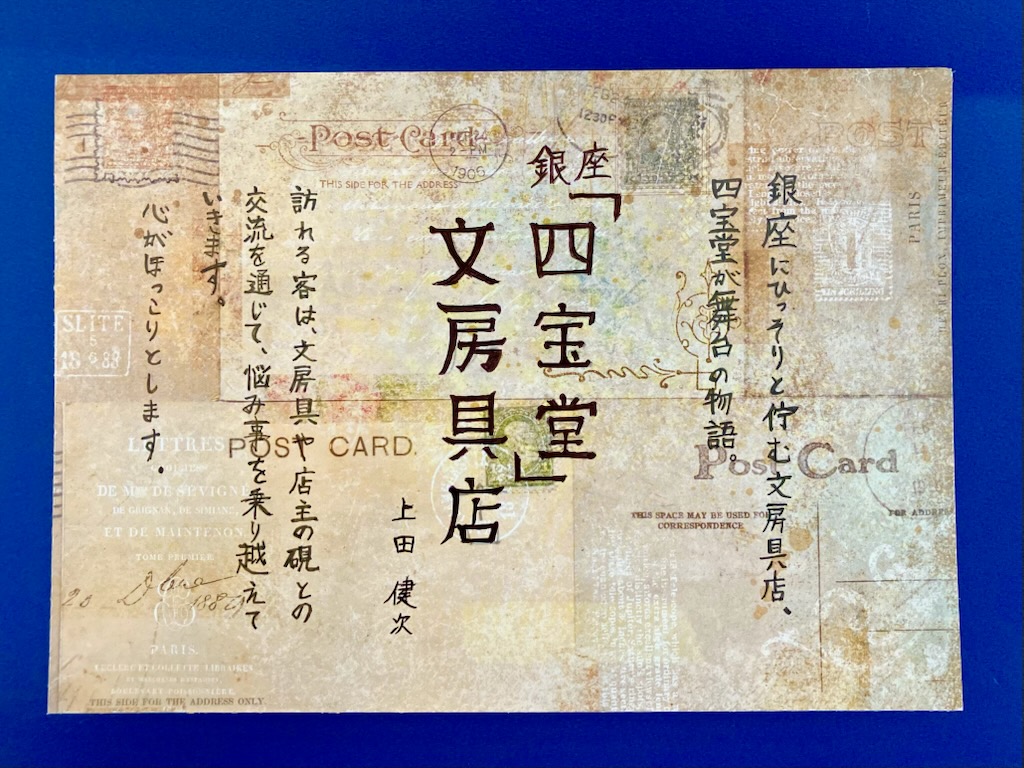 銀座にひっそりと佇む文房具店、
四宝堂が舞台の物語。
銀座
「四宝堂」
文房具店
上田 健次
訪れる客は、文房具や店主の硯との
交流を通じて、悩み事を乗り越えて
いきます。
心がほっこりとします。
Post Card
THIS SIDE FOR THE ADDRESS
1906
1230P
POST
PARIS
SLITE
LETTRES
POST CARD.
DE MME DE SEVIGNE
DE GRIGNAN, DE SIMIANE,
ET DE MAINTENON
TOME PREMIER
PARIS.
THIS SIDE FOR THE ADDRESS ONLY.
Post Card
THIS SPACE MAY BE USED FOR
CORRESPONDENCE.
FOR ADDRESS